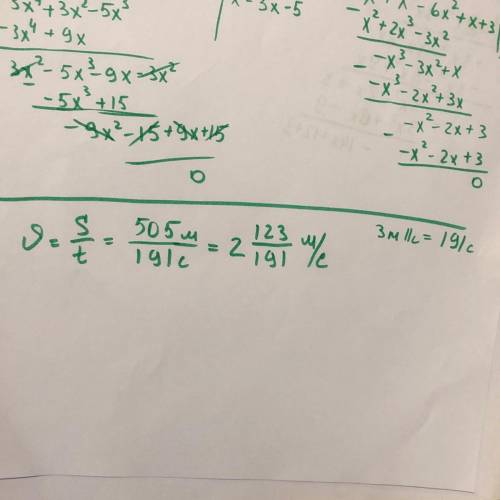 3x⁴+3x²-5x³
-3x⁴ + 9x
3x² - 5x³ - 9x - 3x²
- 5x³ + 15
- 9x² - 15 + 9x + 15
0
x - 3x - 5
- 6x² + x + 3
x² + 2x³ - 3x²
- x³ - 3x² + x
- x³ - 2x² + 3x
- x² - 2x + 3
- x² - 2x + 3
0
𝜗 = S/t = 505м/191с = 2 123/191 м/с
3м 11с = 191с